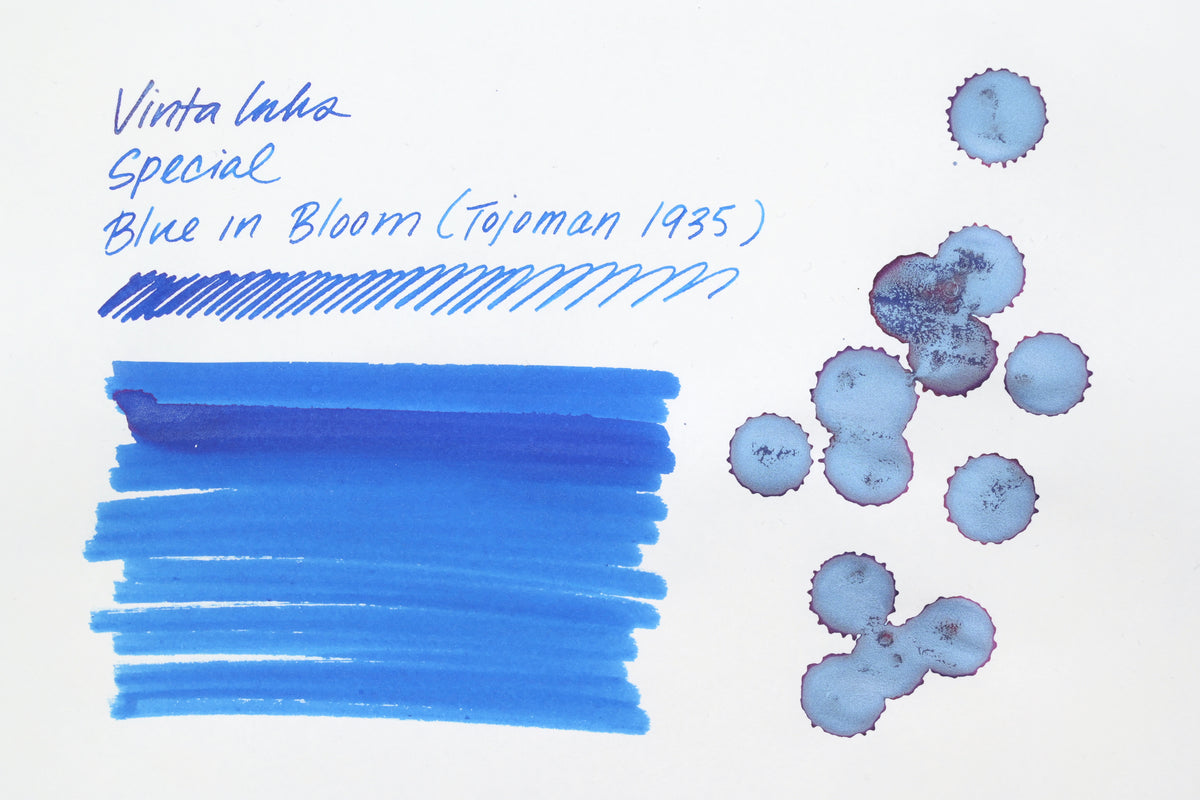 Vinta Inks
Special
Blue in Bloom (Tojoman 1935)